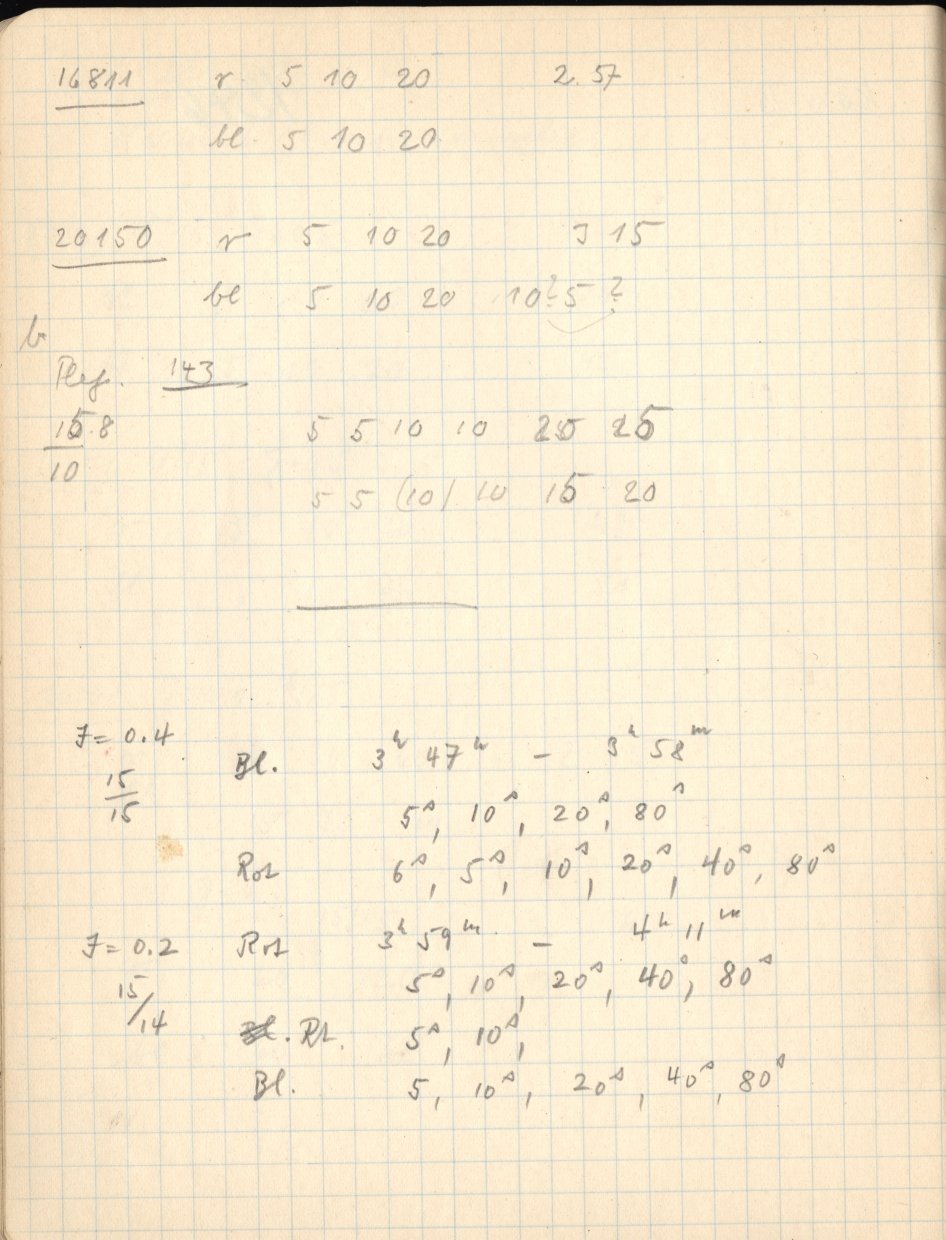 16811 r 5 10 20 2.57
bl 5 10 20
20150 r 5 10 20 3 15
bl 5 10 20 10? 5 ?
143
15.8 5 5 10 10
10
5 5 (10) 10 15 20
J = 0.4
Bl. 3h 47m – 3h 58m
15
15
5s, 10s, 20s, 80s
Rot 6s, 5s, 10s, 20s, 40s, 80s
J = 0.2 Rot 3h 59m – 4h 11m
15/14 5s, 10s, 20s, 40s, 80s
Rt. 5s, 10s,
Bl. 5, 10s, 20s, 40s, 80s